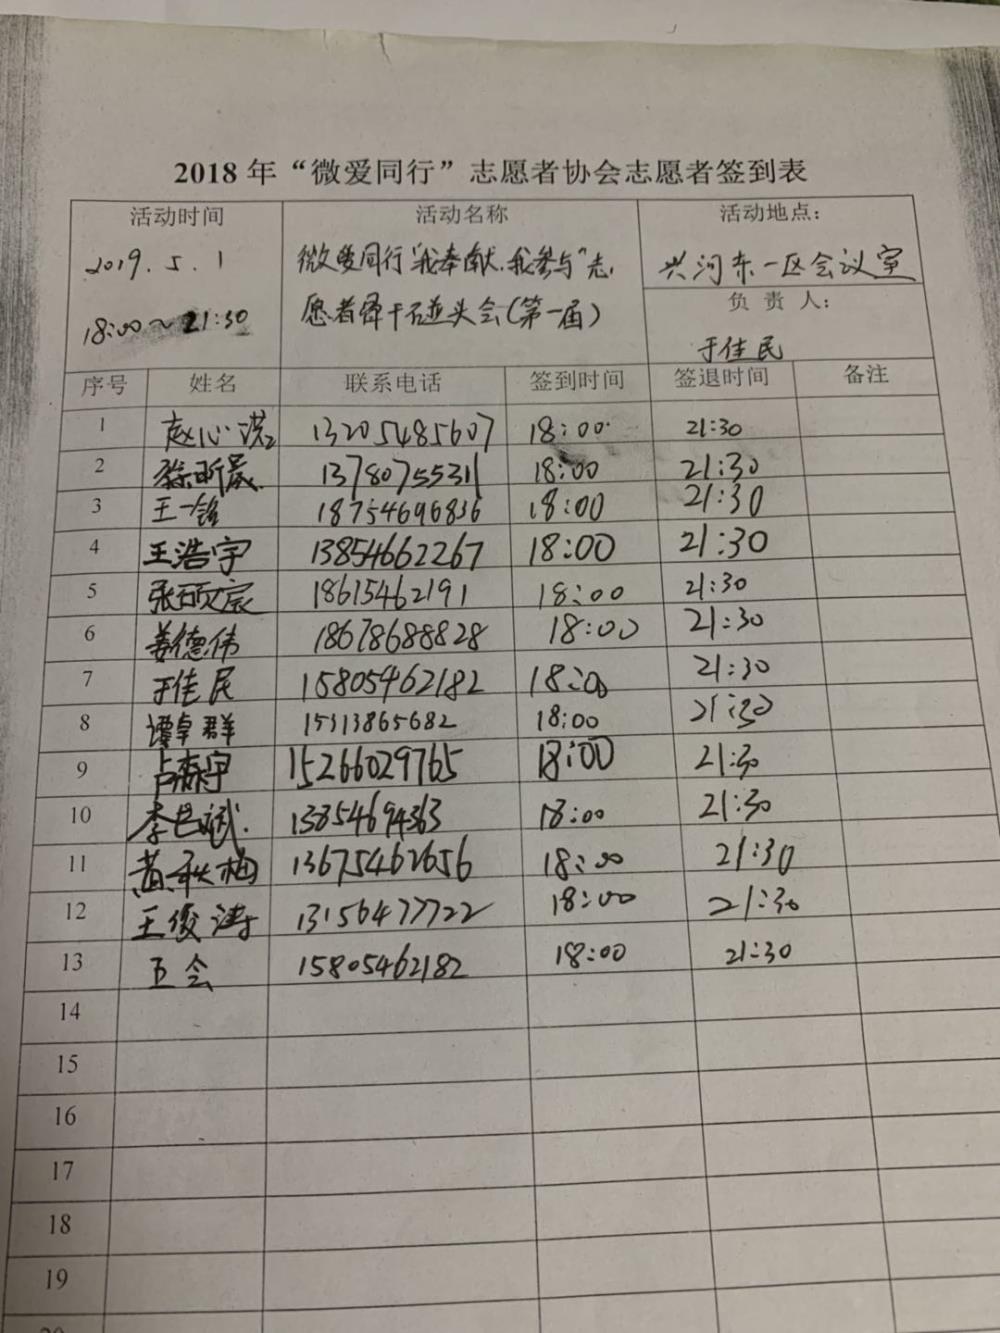 2018 年“微爱同行”志愿者协会志愿者签到表
活动时间 活动名称 活动地点：
2019.5.1 微爱同行"我奉献.我参与"志 兴河东一区会议室
18:00~21:30 愿者骨干碰头会(第一届) 负责人：
于佳民
序号 姓名 联系电话 签到时间 签退时间 备注
1 赵心 13205485607 18:00 21:30
2 徐昕晟 13780755311 18:00 21:30
3 王一铭 18754696836 18:00 21:30
4 王浩宇 13854662267 18:00 21:30
5 张硕宸 18615462191 18:00 21:30
6 姜德伟 18678688828 18:00 21:30
7 于佳民 15805462182 18:00 21:30
8 谭卓群 15313865682 18:00 21:30
9 卢森宇 15266029765 18:00 21:30
10 李吕斌 13854694363 18:00 21:30
11 黄秋梅 13675462656 18:00 21:30
12 王俊涛 13156477722 18:00 21:30
13 会 15805462182 18:00 21:30
14
15
16
17
18
19